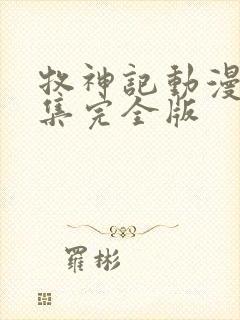 牧神記動漫
集完全版
羅彬